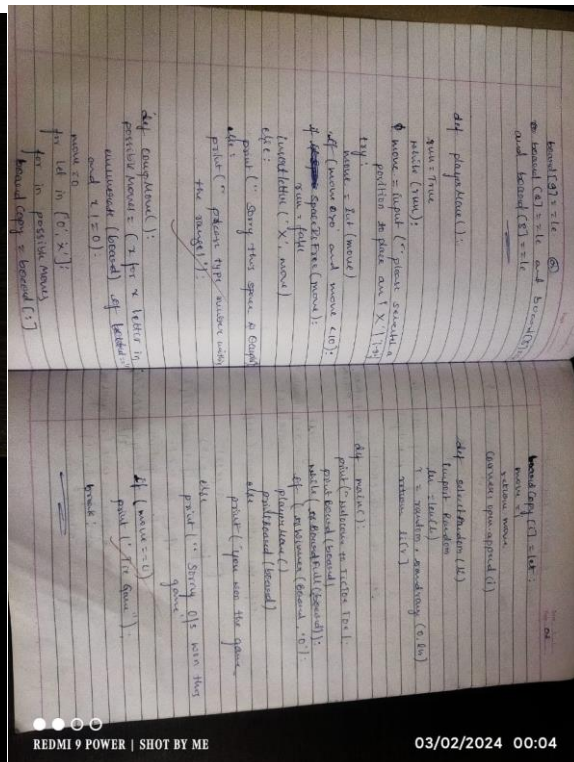 board[9]==le or
board[2]==le and board[5]==le
and board[8]==le
def playerMove():
run=True
while(run):
move=input("please select a
position to place an 'X'
try:
move=int(move)
if(move>0 and move<10):
if spaceIsFree(move):
run=false
insertletter('X',move)
else:
print("Sorry this space is
else:
print("please type number with
the range!"):
def compMove():
possible Moves=(x for x letter in
enumerate(board) if letter==''
and x!=0):
move=0
for let in ['0','x']:
for in possible Moves
board copy=board[:]
board copy[i]=let:
move=i
return move
cornersopen.append(i)
def selectRandom(li)
import Random
ln=len(li)
r=random.randrange(0,ln)
return li[r]
def main():
print("welcome to TicTac Toe):
print Board(board)
while(isBoardFull(board)):
if(isWinner(board,'0'):
playerMove()
printBoard(board)
else
print("you won the game,
else
print("Sorry O's won this
game'
if(move==0)
print('Tie Game"):
break:
REDMI 9 POWER | SHOT BY ME
03/02/2024 00:04